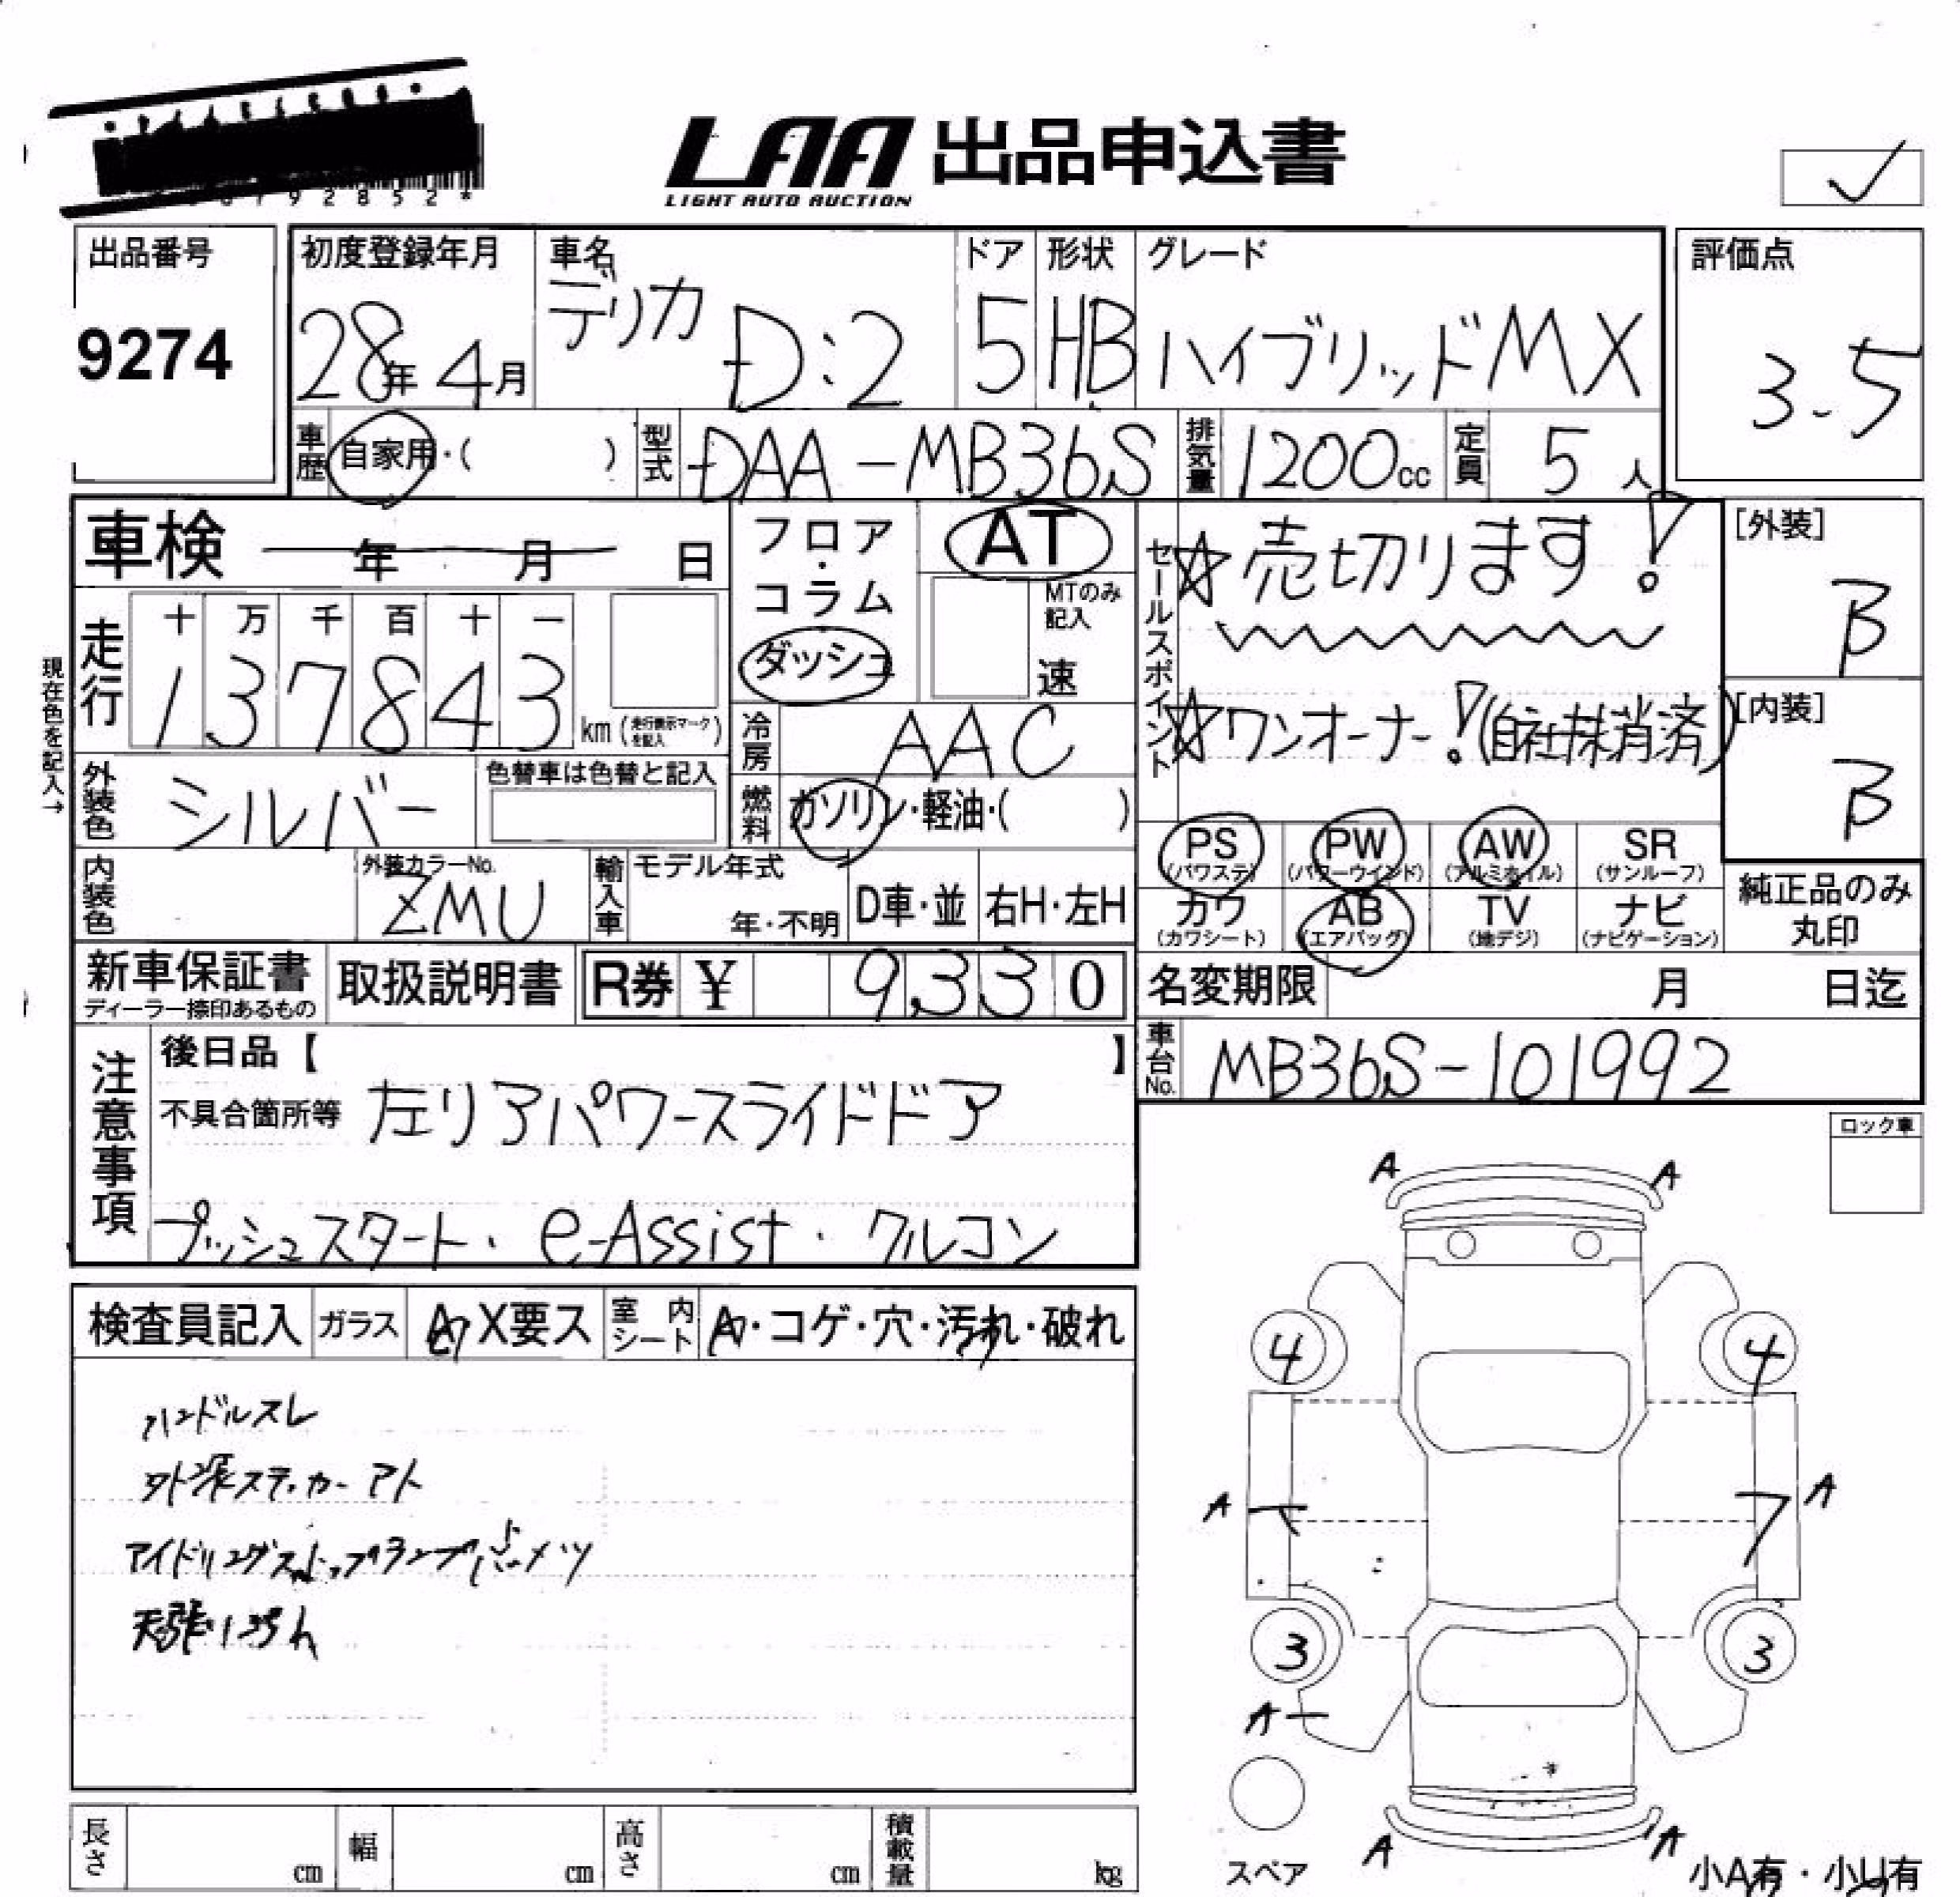 92852*
LAA 出品申込書
LIGHT AUTO AUCTION
✓
出品番号
9274
初度登録年月
28年 4月
車名
デリカ D:2
ドア
5
形状
HB
グレード
ハイブリッドMX
評価点
3.5
車歴 自家用・( )
型式 DAA-MB36S
排気量 1200cc
定員 5人
車検 年 月 日
フロア・コラム
ダッシュ
AT
MTのみ記入
速
セールスポイント
☆売切ります!
☆ワンオーナー!(自社抹消済)
[外装]
B
[内装]
B
現在色を記入→
走行
十 万 千 百 十 一
1 3 7 8 4 3 km (走行表示マークを記入)
冷房 AAC
燃料 ガソリン・軽油・( )
外装色 シルバー
色替車は色替と記入
内装色
外装カラーNo.
ZMU
輸入車
モデル年式
年・不明
D車・並
右H・左H
PS (パワステ)
PW (パワーウインド)
AW (アルミホイル)
SR (サンルーフ)
カワ (カワシート)
AB (エアバッグ)
TV (地デジ)
ナビ (ナビゲーション)
純正品のみ丸印
新車保証書
ディーラー捺印あるもの
取扱説明書
R券 ¥ 9330
名変期限 月 日迄
車台No. MB36S-101992
注意事項
後日品【 】
不具合箇所等 左リアパワースライドドア
プッシュスタート・e-Assist・クルコン
ロック車
検査員記入
ガラス A X要ス
室内シート A・コゲ・穴・汚れ・破れ
ハンドルスレ
外装ステッカーアト
アイドリングストップランプ点メツ
天張り汚れ
A A
4 4
A A
3 3
A
A A
スペア
小A有・小U有
長さ cm
幅 cm
高さ cm
積載量 kg